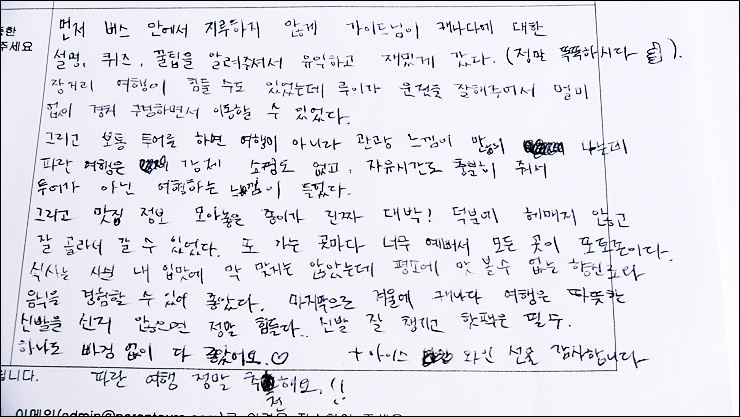 통한
주세요
먼저 버스 안에서 지루하지 않게 가이드님이 캐나다에 대한
설명, 퀴즈, 꿀팁을 알려주셔서 유익하고 재밌게 갔다. (정말 똑똑하시다 👍).
장거리 여행이 힘들 수도 있었는데 루이가 운전을 잘해주어서 멀미
없이 경치 구경하면서 이동할 수 있었다.
그리고 보통 투어를 하면 여행이 아니라 관광 느낌이 많이 나는데
파란 여행은 강제 쇼핑도 없고, 자유시간도 충분히 줘서
투어가 아닌 여행하는 느낌이 들었다.
그리고 맛집 정보 모아놓은 종이가 진짜 대박! 덕분에 헤매지 않고
잘 골라서 갈 수 있었다. 또 가는 곳마다 너무 예뻐서 모든 곳이 포토존이다.
식사는 사실 내 입맛에 막 맞지는 않았는데 평소에 맛 볼 수 없는 향신료라
음식을 경험할 수 있어 좋았다. 마지막으로 겨울에 캐나다 여행은 따뜻한
신발을 신지 않으면 정말 힘들다. 신발 잘 챙기고 핫팩은 필수.
하나도 빠짐 없이 다 좋았어요. ♡ + 아이스 와인 선물 감사합니다
입니다. 파란 여행 정말 추천해요. !!